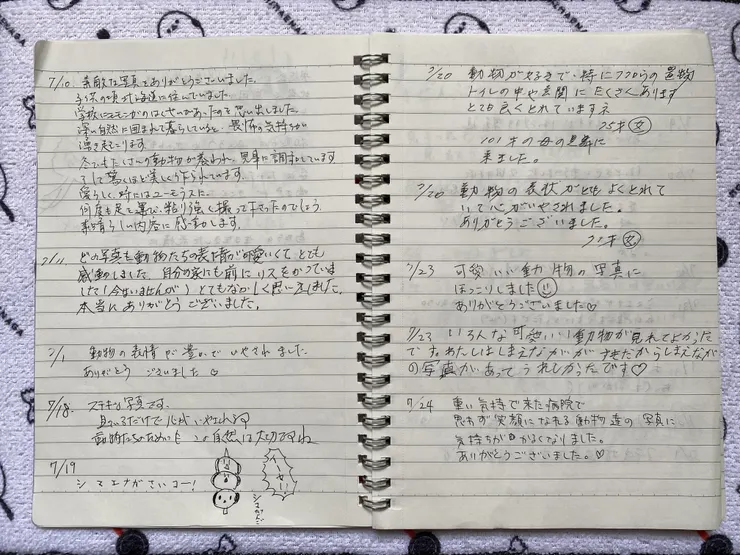 7/10 素敵な写真をありがとうございました。
子供の頃 北海道に住んでいました。
学校にモモンガのはくせいがあったのを思い出しました。
深い自然に囲まれて暮らしていると、畏怖の気持ちが
湧き起こります。
冬でもたくさんの動物が養われ、見事に調和しています
そして驚くほど美しく作られています。
愛らしく、時にはユーモラスに。
何度も足を運び、粘り強く撮って下さったのでしょう。
素晴らしい内容に感動します。
どの写真も動物たちの表情が可愛いくて、とても
感動しました。自分の家にも前にリスをかっていま
した(今はいませんが)とてもなつかしく思い出しました。
本当にありがとうございました。
動物の表情が豊かでいやされました。
ありがとう ございました ♡
7/18. ステキな写真です。
見ているだけで心がいやされます
動物たちのためにも この自然は大切ですね
7/19
シマエナガさいコー!
7/20 動物が好きで、特にフクロウの置物
トイレの中や玄関にたくさんあります
とても良くとれていますネ
75才 女
101才の母の見舞に
来ました。
7/20 動物の表状がとてもよくとれて
いて心がいやされました。
ありがとうございました。
77才 女
7/23 可愛いい動物の写真に
ほっこりしました
ありがとうございました♡
7/23 いろんな可愛いい動物が見れてよかった
です。わたしはしまえなががすきだからしまえなが
の写真があってうれしかったです♡
7/24 重い気持で来た病院で
思わず笑顔になれる動物達の写真に
気持ちがかるくなりました。
ありがとうございました。♡